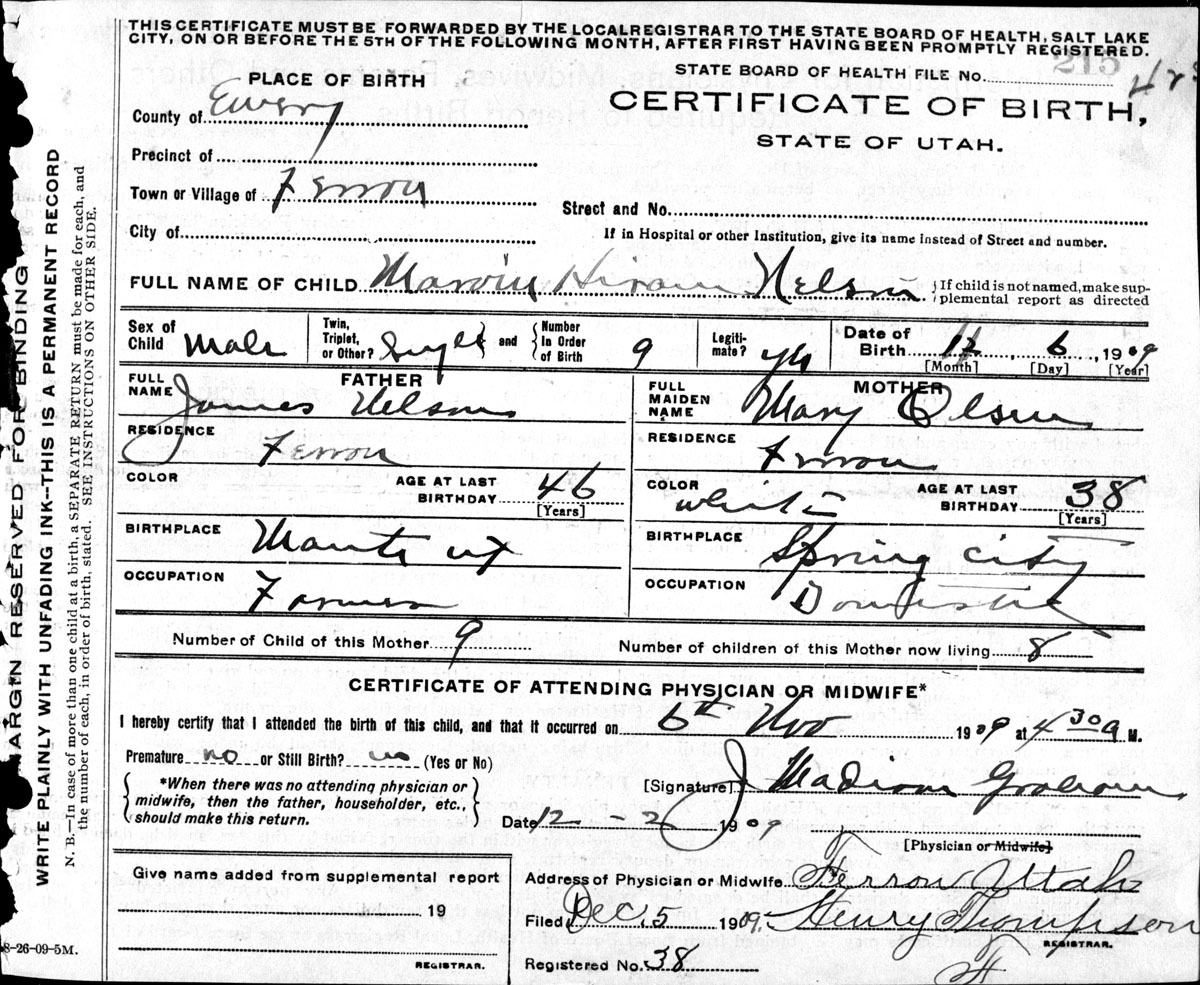 THIS CERTIFICATE MUST BE FORWARDED BY THE LOCAL REGISTRAR TO THE STATE BOARD OF HEALTH, SALT LAKE
CITY, ON OR BEFORE THE 5TH OF THE FOLLOWING MONTH, AFTER FIRST HAVING BEEN PROMPTLY REGISTERED.
PLACE OF BIRTH
STATE BOARD OF HEALTH FILE NO. 215
County of Emery
CERTIFICATE OF BIRTH,
STATE OF UTAH.
Precinct of
Town or Village of Ferron
Street and No.
City of
If in Hospital or other Institution, give its name instead of Street and number.
FULL NAME OF CHILD Marvin Hiram Nelson { If child is not named, make sup-
plemental report as directed
Sex of Child Male Twin, Triplet, or Other? Single } and { Number In Order of Birth 9 Legiti-mate? yes Date of Birth 11, 6, 1909
[Month] [Day] [Year]
FATHER
FULL NAME James Nelson
RESIDENCE Ferron
COLOR AGE AT LAST BIRTHDAY 46
[Years]
BIRTHPLACE Manti ut
OCCUPATION Farmer
MOTHER
FULL MAIDEN NAME Mary Olsen
RESIDENCE Ferron
COLOR White AGE AT LAST BIRTHDAY 38
[Years]
BIRTHPLACE Spring City
OCCUPATION Domestic
Number of Child of this Mother 9 Number of children of this Mother now living 8
CERTIFICATE OF ATTENDING PHYSICIAN OR MIDWIFE*
I hereby certify that I attended the birth of this child, and that it occurred on 6th Nov 1909 at 4 30 a M.
Premature no or Still Birth? no (Yes or No)
*When there was no attending physician or
midwife, then the father, householder, etc.,
should make this return.
[Signature] J Madison Graham
Date 12 - 2 1909
[Physician or Midwife]
Give name added from supplemental report
19
REGISTRAR.
Address of Physician or Midwife Ferron Utah
Filed Dec 5 1909. Henry Thompson
REGISTRAR.
Registered No. 38
8-26-09-5M.
MARGIN RESERVED FOR BINDING
WRITE PLAINLY WITH UNFADING INK--THIS IS A PERMANENT RECORD
N. B.—In case of more than one child at a birth, a SEPARATE RETURN must be made for each, and
the number of each, in order of birth, stated. SEE INSTRUCTIONS ON OTHER SIDE.